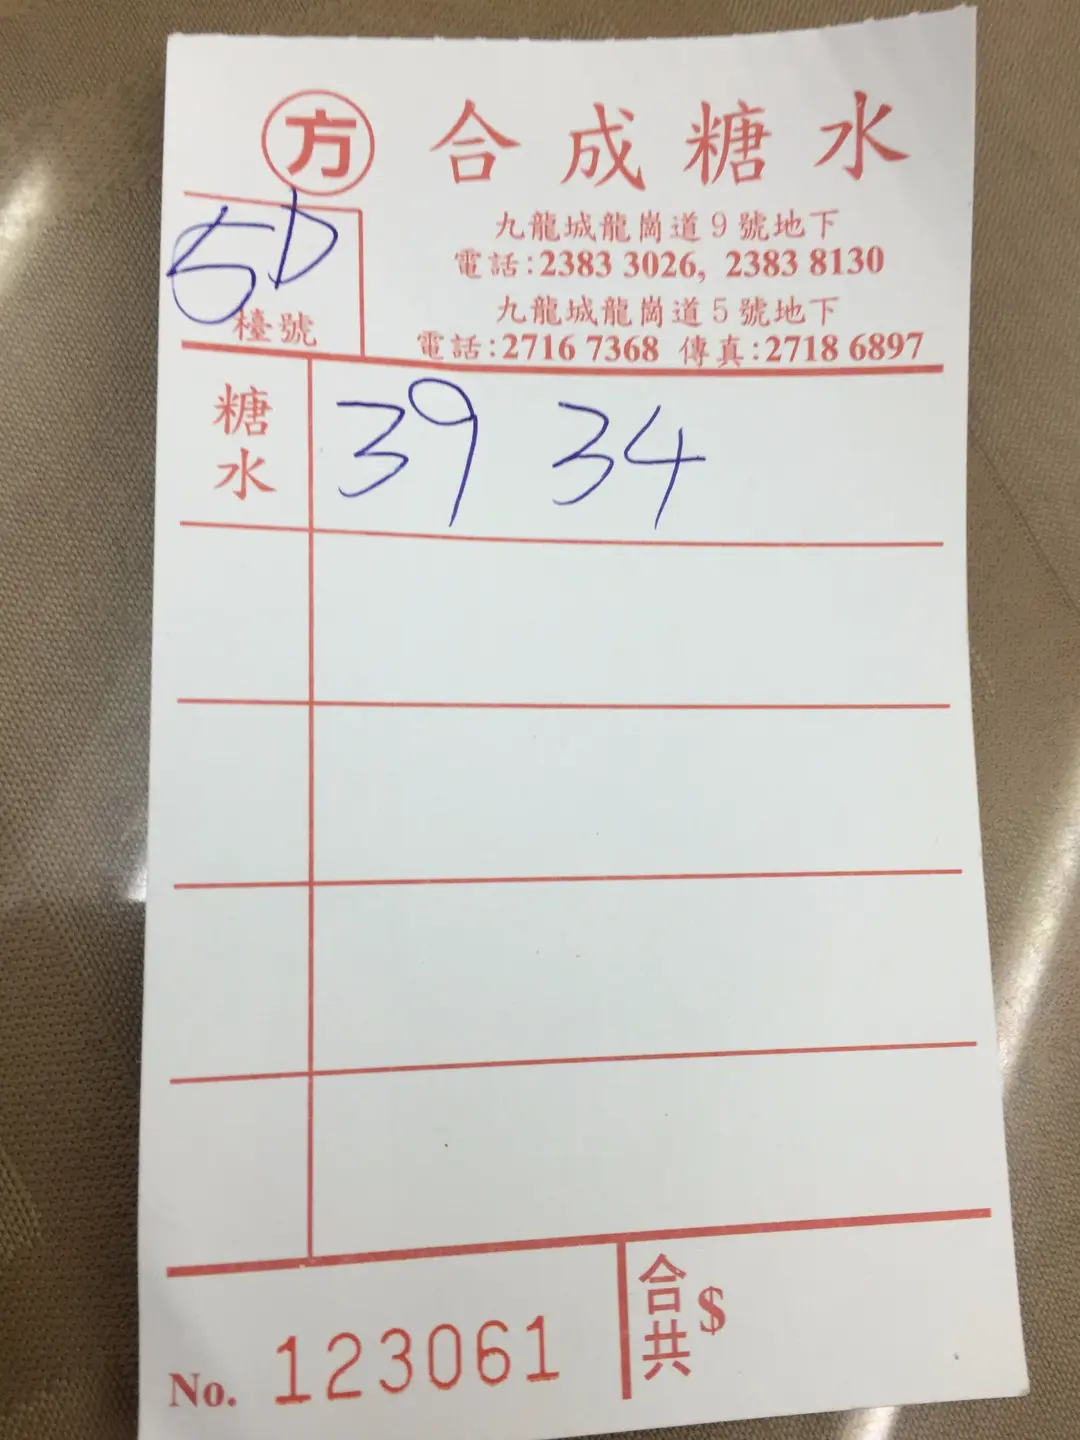 方 合成糖水
九龍城龍崗道9號地下
電話:2383 3026, 2383 8130
九龍城龍崗道5號地下
電話:2716 7368 傳真:2718 6897
5D
檯號
糖水 39 34
No. 123061
合共 $